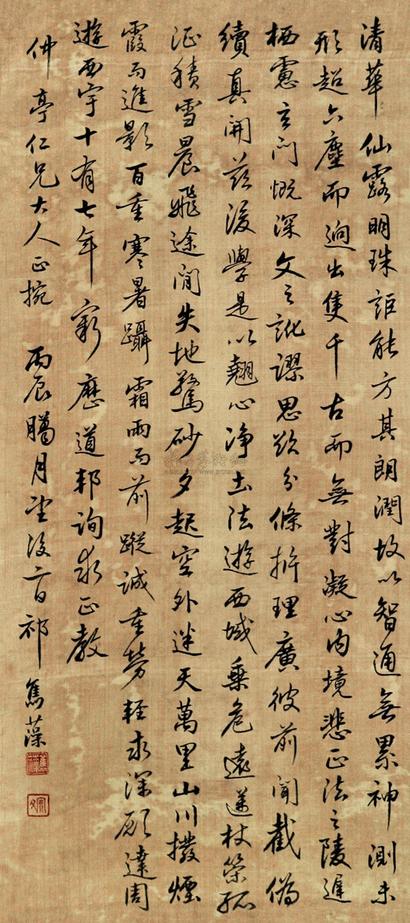 清華仙露明珠詎能方其朗潤故以智通無累神測未
形超六塵而迥出隻千古而無對凝心內境悲正法之陵遲
栖慮玄門慨深文之訛謬思欲分條析理廣彼前聞截偽
續真開茲後學是以翹心淨土法遊西域乘危遠邁杖策孤
征積雪晨飛途閒失地驚砂夕起空外迷天萬里山川撥煙
霞而進影百重寒暑躡霜雨而前蹤誠重勞輕求深願達周
遊西宇十有七年窮歷道邦詢求正教
仲亭仁兄大人正捥 丙辰臘月望後日祁雋藻